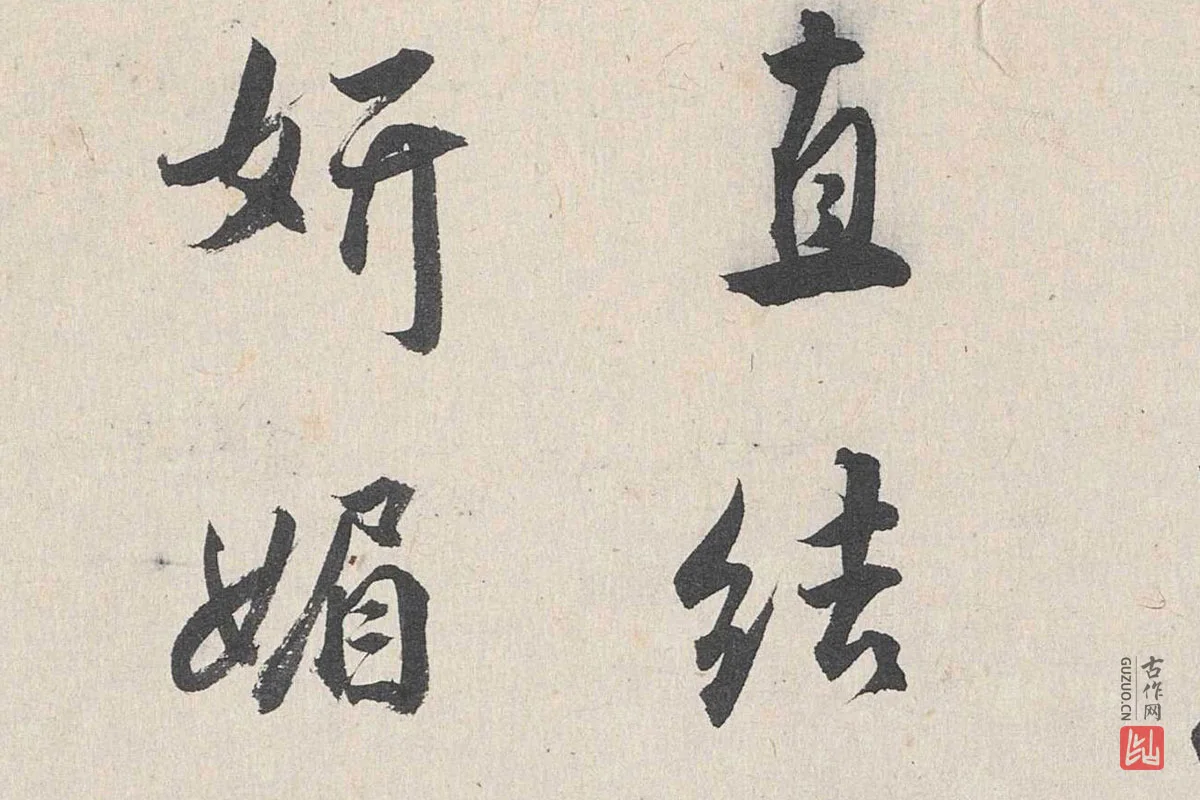 直结
妍媚
古作网
GUZUO.CN